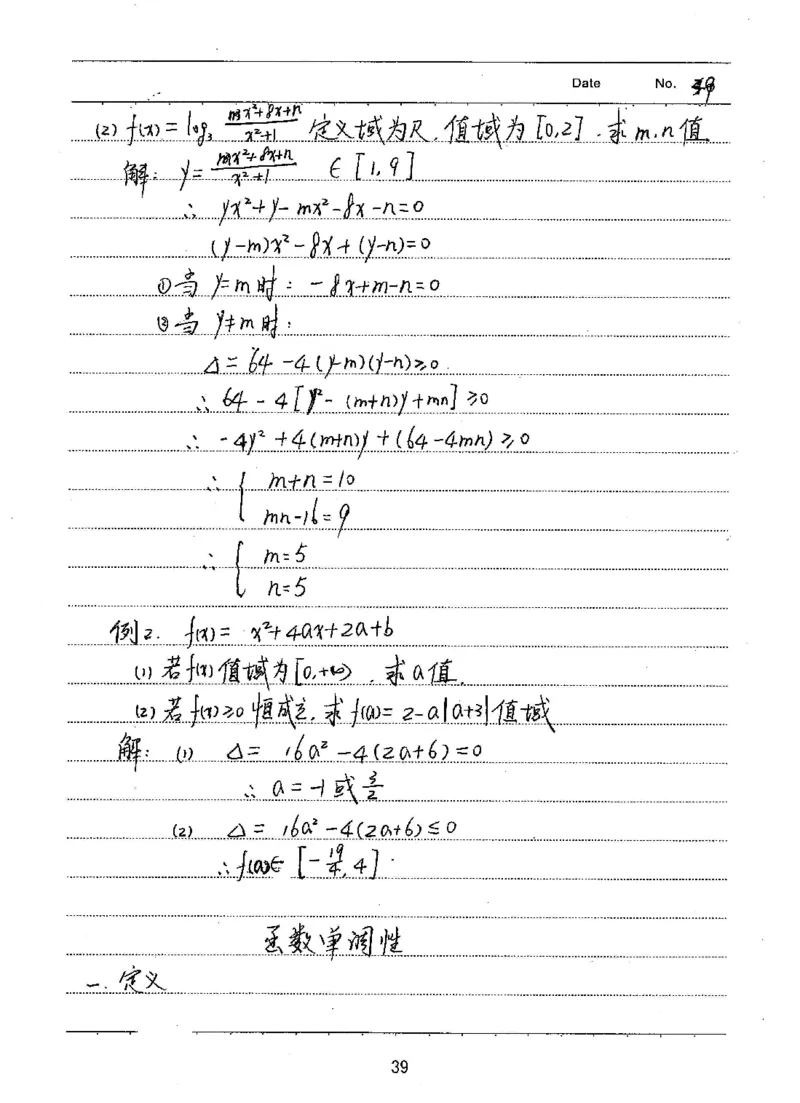 Date No. 39
(2) f(x) = log₃ (mx²+8x+n)/(x²+1) 定义域为R, 值域为[0,2]. 求m,n值
解: y = (mx²+8x+n)/(x²+1) ∈ [1,9]
∴ yx²+y-mx²-8x-n=0
(y-m)x²-8x+(y-n)=0
①当 y=m时: -8x+m-n=0
②当 y≠m时:
Δ = 64-4(y-m)(y-n)≥0
∴ 64-4[y²-(m+n)y+mn]≥0
∴ -4y²+4(m+n)y+(64-4mn)≥0
∴ { m+n=10
mn-16=9
∴ { m=5
n=5
例2. f(x)= x²+4ax+2a+b
(1) 若f(x)值域为[0,+∞), 求a值.
(2) 若f(x)≥0恒成立, 求f(a)=2-a|a+3|值域
解: (1) Δ= 16a²-4(2a+6)=0
∴ a=-1或3/2
(2) Δ= 16a²-4(2a+6)≤0
∴ f(a)∈[-19/4, 4].
函数单调性
一. 定义
39